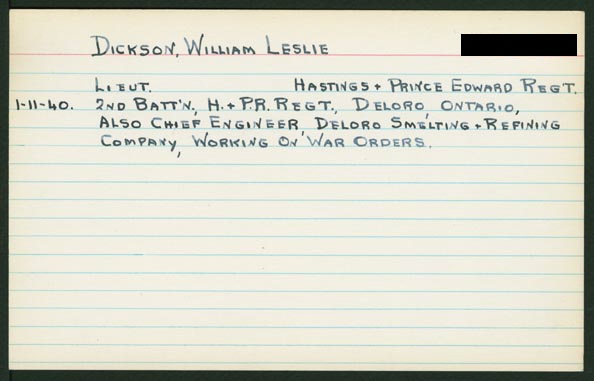 DICKSON, WILLIAM LESLIE
LIEUT. HASTINGS + PRINCE EDWARD REGT.
1-11-40. 2ND BATT'N., H. + P.R. REGT., DELORO, ONTARIO,
ALSO CHIEF ENGINEER, DELORO SMELTING + REFINING
COMPANY, WORKING ON WAR ORDERS.